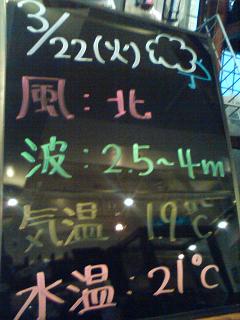 3/22(火)
風:北
波:2.5~4m
気温:19℃
水温:21℃